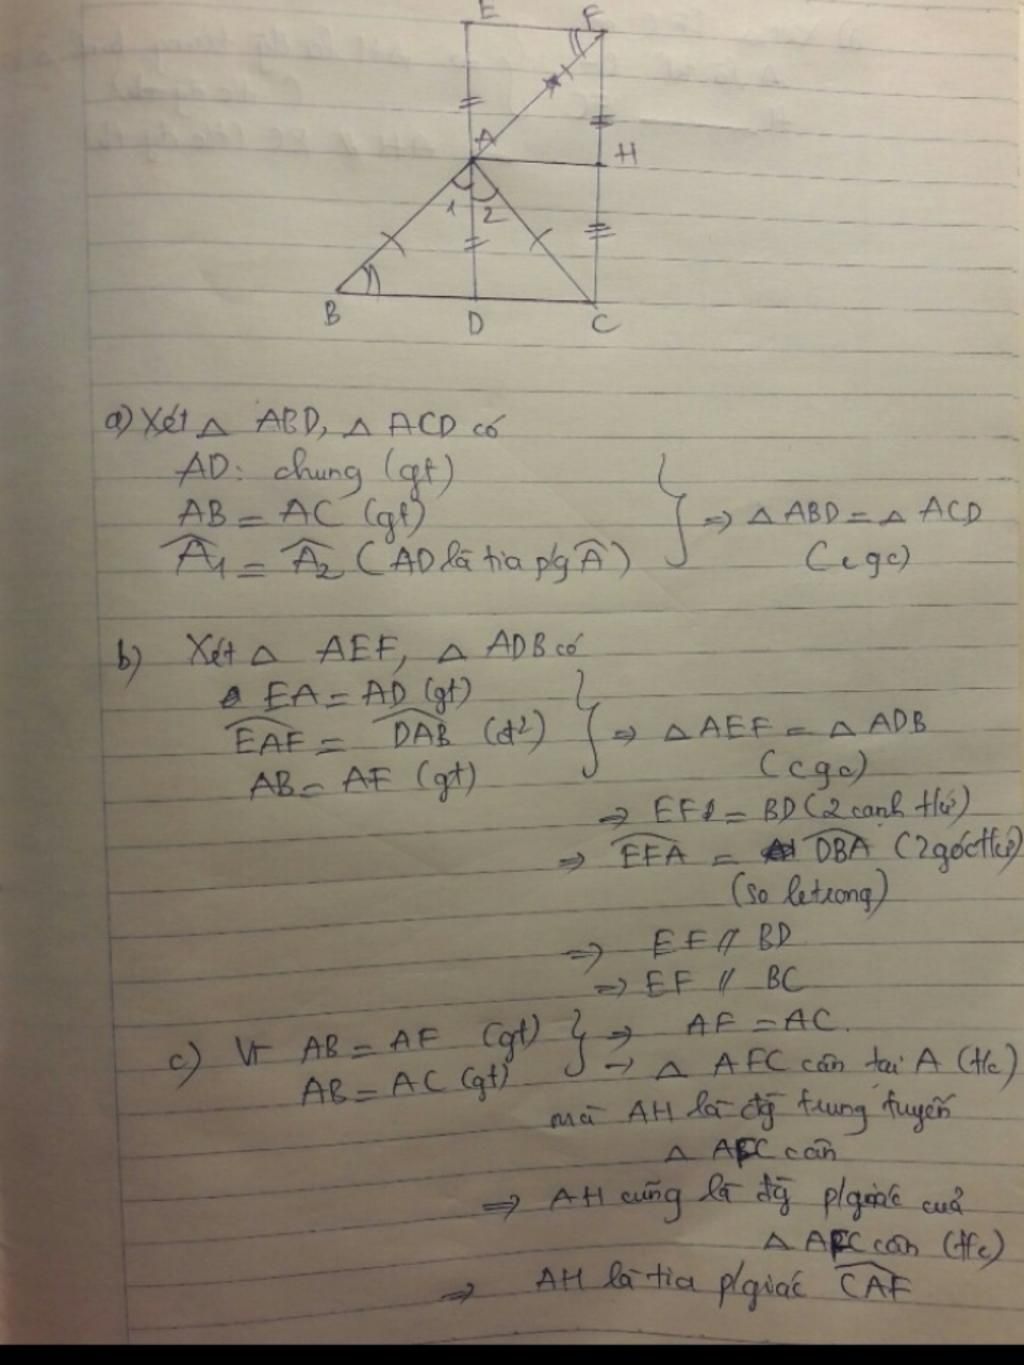 E F
A
H
1 2
B D C
a) Xét △ ABD, △ ACD có
AD: chung (gt)
AB = AC (gt)
Â1 = Â2 (AD là tia p/g Â)
} => △ ABD = △ ACD
(cgc)
b) Xét △ AEF, △ ADB có
EA = AD (gt)
EAF = DAB (đ²)
AB = AF (gt)
} => △ AEF = △ ADB
(cgc)
=> EF = BD (2 cạnh t/ứ)
=> EFA = DBA (2 góc t/ứ)
(so le trong)
=> EF // BD
=> EF // BC
c) Vì AB = AF (gt) } => AF = AC.
AB = AC (gt) → △ AFC cân tại A (t/c)
mà AH là đg trung tuyến
△ AFC cân
=> AH cũng là đg p/giác của
△ AFC cân (t/c)
=> AH là tia p/giác CAF